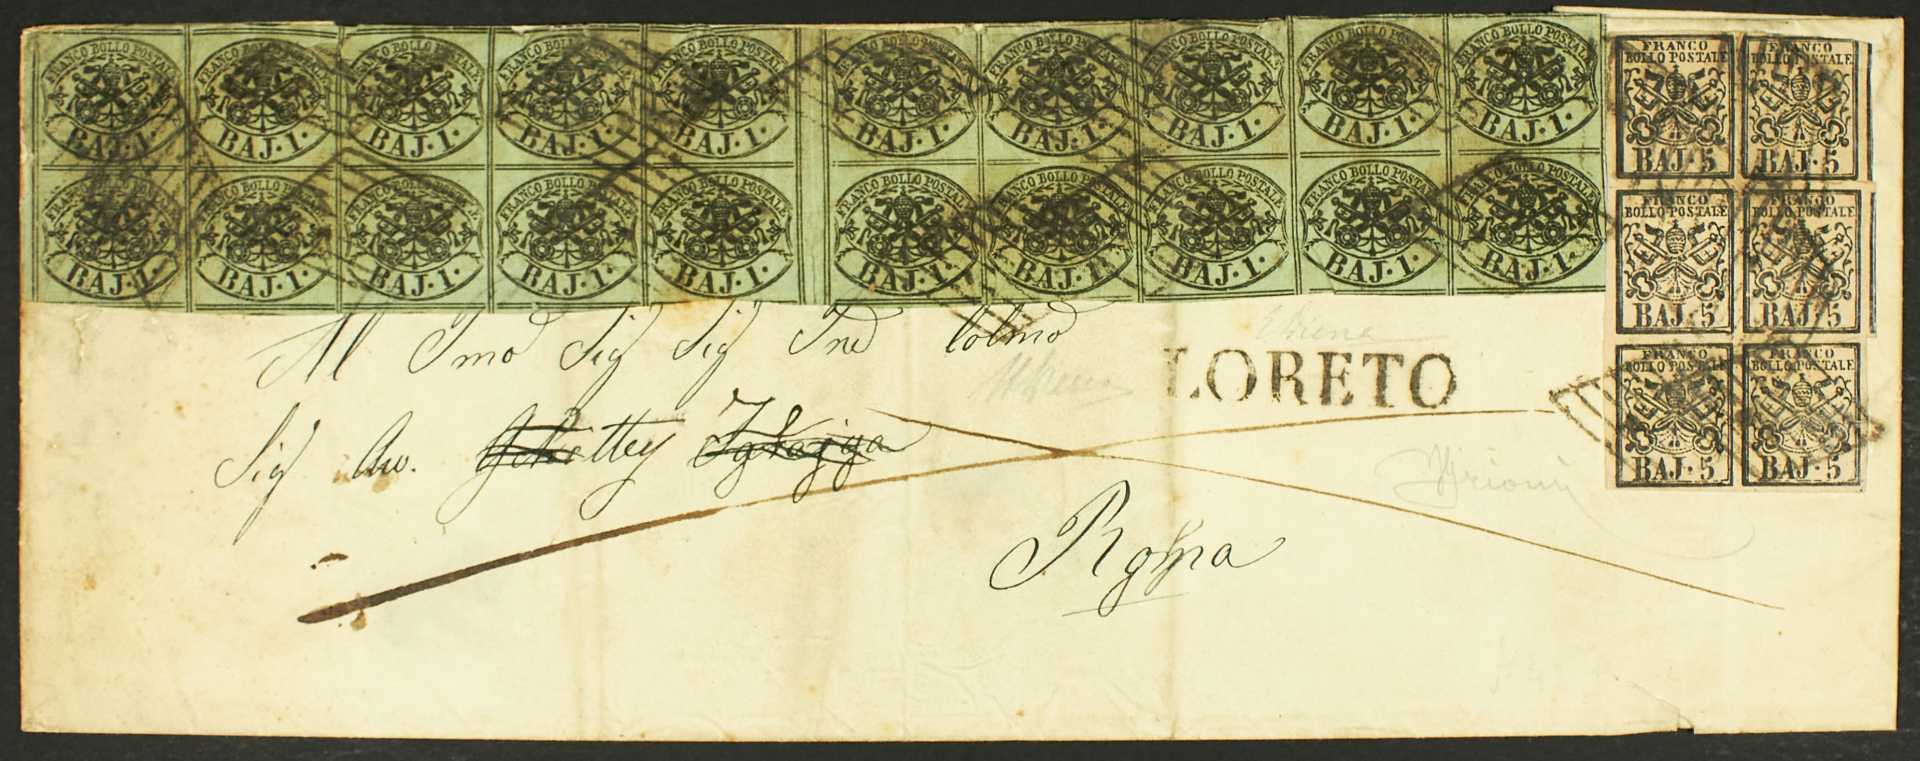 FRANCO BOLLO POSTALE FRANCO BOLLO POSTALE FRANCO BOLLO POSTALE FRANCO BOLLO POSTALE FRANCO BOLLO POSTALE FRANCO BOLLO POSTALE FRANCO BOLLO POSTALE FRANCO BOLLO POSTALE FRANCO BOLLO POSTALE FRANCO BOLLO POSTALE
BAJ.1. BAJ.1. BAJ.1. BAJ.1. BAJ.1. BAJ.1. BAJ.1. BAJ.1. BAJ.1. BAJ.1.
FRANCO BOLLO POSTALE FRANCO BOLLO POSTALE FRANCO BOLLO POSTALE FRANCO BOLLO POSTALE FRANCO BOLLO POSTALE FRANCO BOLLO POSTALE FRANCO BOLLO POSTALE FRANCO BOLLO POSTALE FRANCO BOLLO POSTALE FRANCO BOLLO POSTALE
BAJ.1. BAJ.1. BAJ.1. BAJ.1. BAJ.1. BAJ.1. BAJ.1. BAJ.1. BAJ.1. BAJ.1.
FRANCO FRANCO
BOLLO POSTALE BOLLO POSTALE
BAJ·5 BAJ·5
FRANCO FRANCO
BOLLO POSTALE BOLLO POSTALE
BAJ·5 BAJ·5
FRANCO FRANCO
BOLLO POSTALE BOLLO POSTALE
BAJ·5 BAJ·5
Al Sig Sig Colmo
LORETO
Sig Avv.
Roma
EDiena